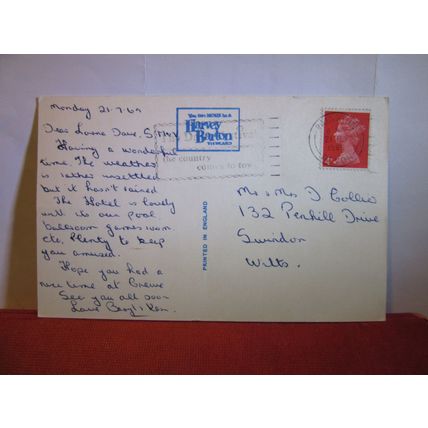 Monday 21.7.69
Dear Lorna Dave.
Having a wonderful
time. The weather
is rather unsettled
but it hasn't rained
The Hotel is lovely
with its own pool
ballroom games room
etc. Plenty to keep
you amused.
Hope you had a
nice time at
See you all soon
Love Beryl & Ken.
You can MORE in A
Harvey
Barton
VIEWCARD
the country
comes to town
PRINTED IN ENGLAND
4D
Mr & Mrs D Collier
132 Penhill Drive
Swindon
Wilts.